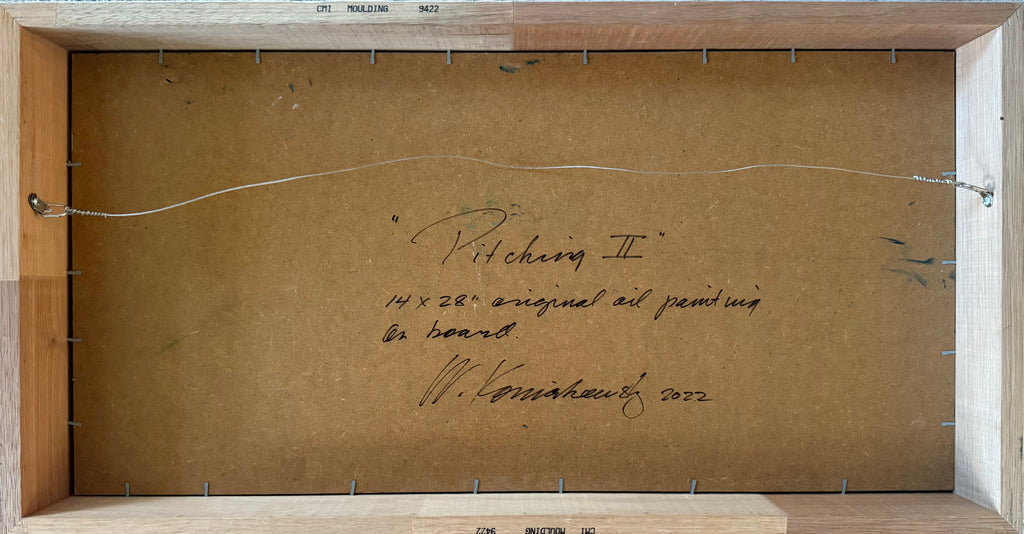 CMI MOULDING 9422
"Pitching II"
14 x 28" original oil painting
on board.
W. Koniakowsky 2022
CMI MOULDING 9422